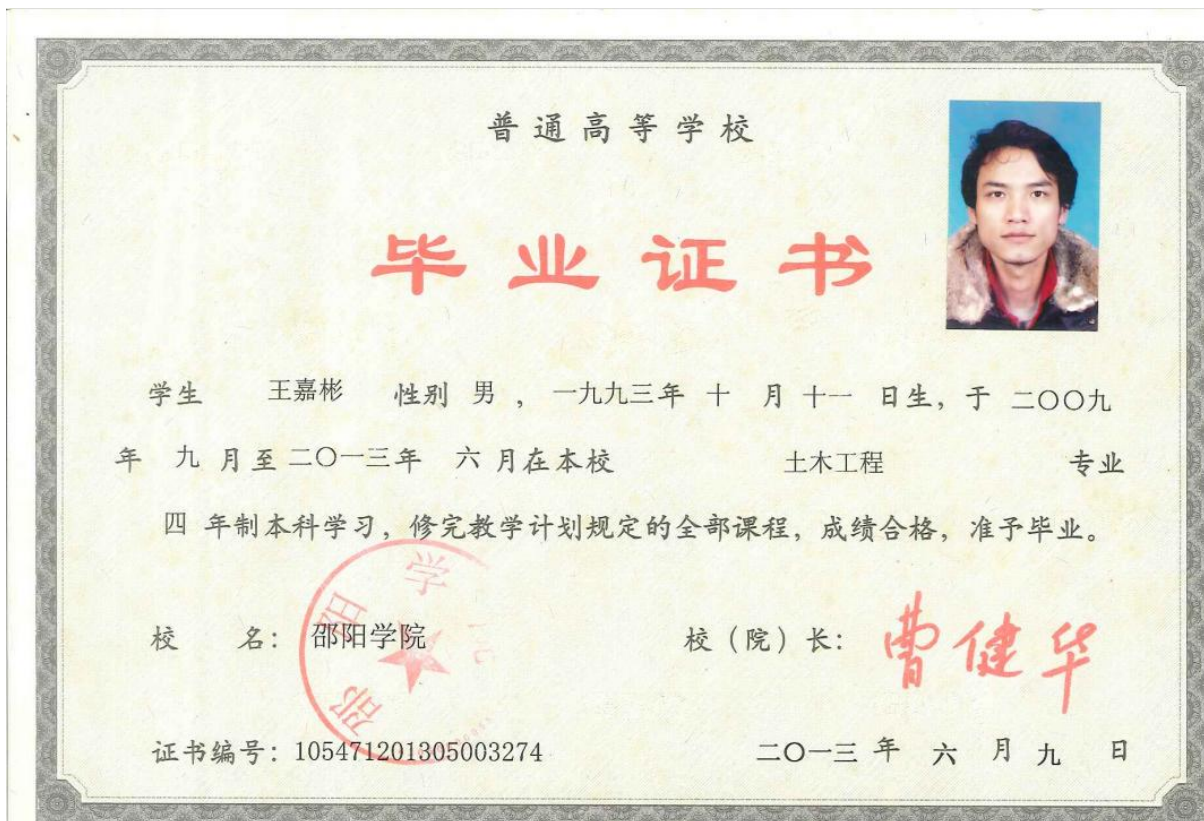 普通高等学校
毕业证书
学生 王嘉彬 性别 男 , 一九九三年 十 月 十一 日生, 于 二〇〇九
年 九 月至二〇一三年 六 月在本校 土木工程 专业
四 年制本科学习, 修完教学计划规定的全部课程, 成绩合格, 准予毕业。
邵阳学
校 名: 邵阳学院 校(院)长: 曹健华
证书编号: 105471201305003274 二〇一三 年 六 月 九 日